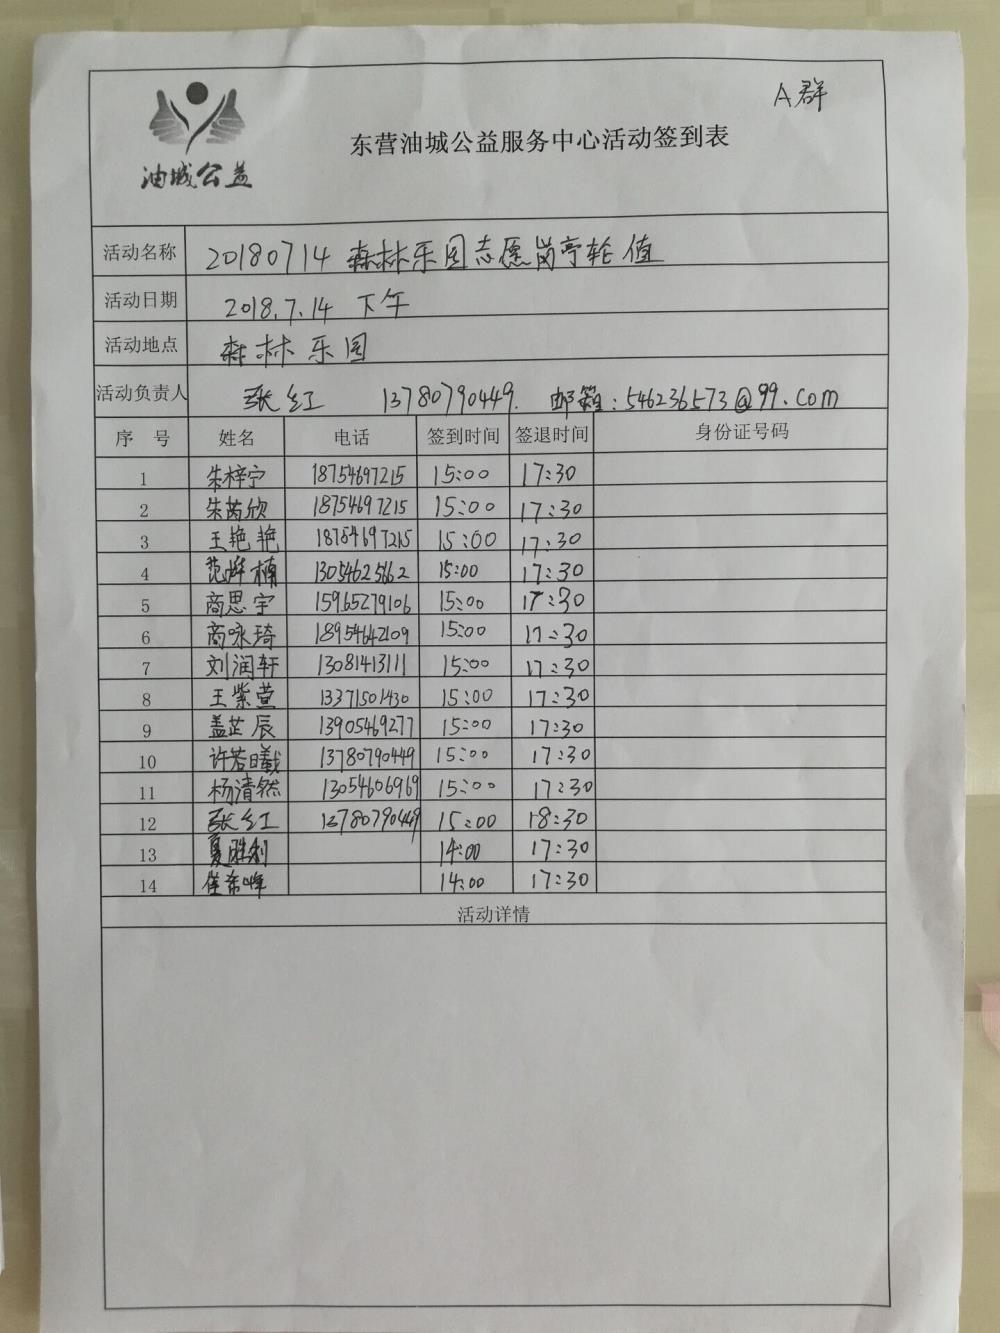 A群
油城公益
东营油城公益服务中心活动签到表
活动名称 20180714 森林乐园志愿岗亭轮值
活动日期 2018.7.14 下午
活动地点 森林乐园
活动负责人 张红 13780790449. 邮箱:546236573@99.com
序号 姓名 电话 签到时间 签退时间 身份证号码
1 朱梓宁 18754697215 15:00 17:30
2 朱芮欣 18754697215 15:00 17:30
3 王艳艳 18754697215 15:00 17:30
4 范烨楠 13054625662 15:00 17:30
5 商思宇 15965279106 15:00 17:30
6 商咏琦 18954642109 15:00 17:30
7 刘润轩 13081413111 15:00 17:30
8 王紫萱 13371501430 15:00 17:30
9 盖芷辰 13905469277 15:00 17:30
10 许若曦 13780790449 15:00 17:30
11 杨清然 13054606969 15:00 17:30
12 张红 13780790449 15:00 18:30
13 夏胜利 14:00 17:30
14 崔希峰 14:00 17:30
活动详情